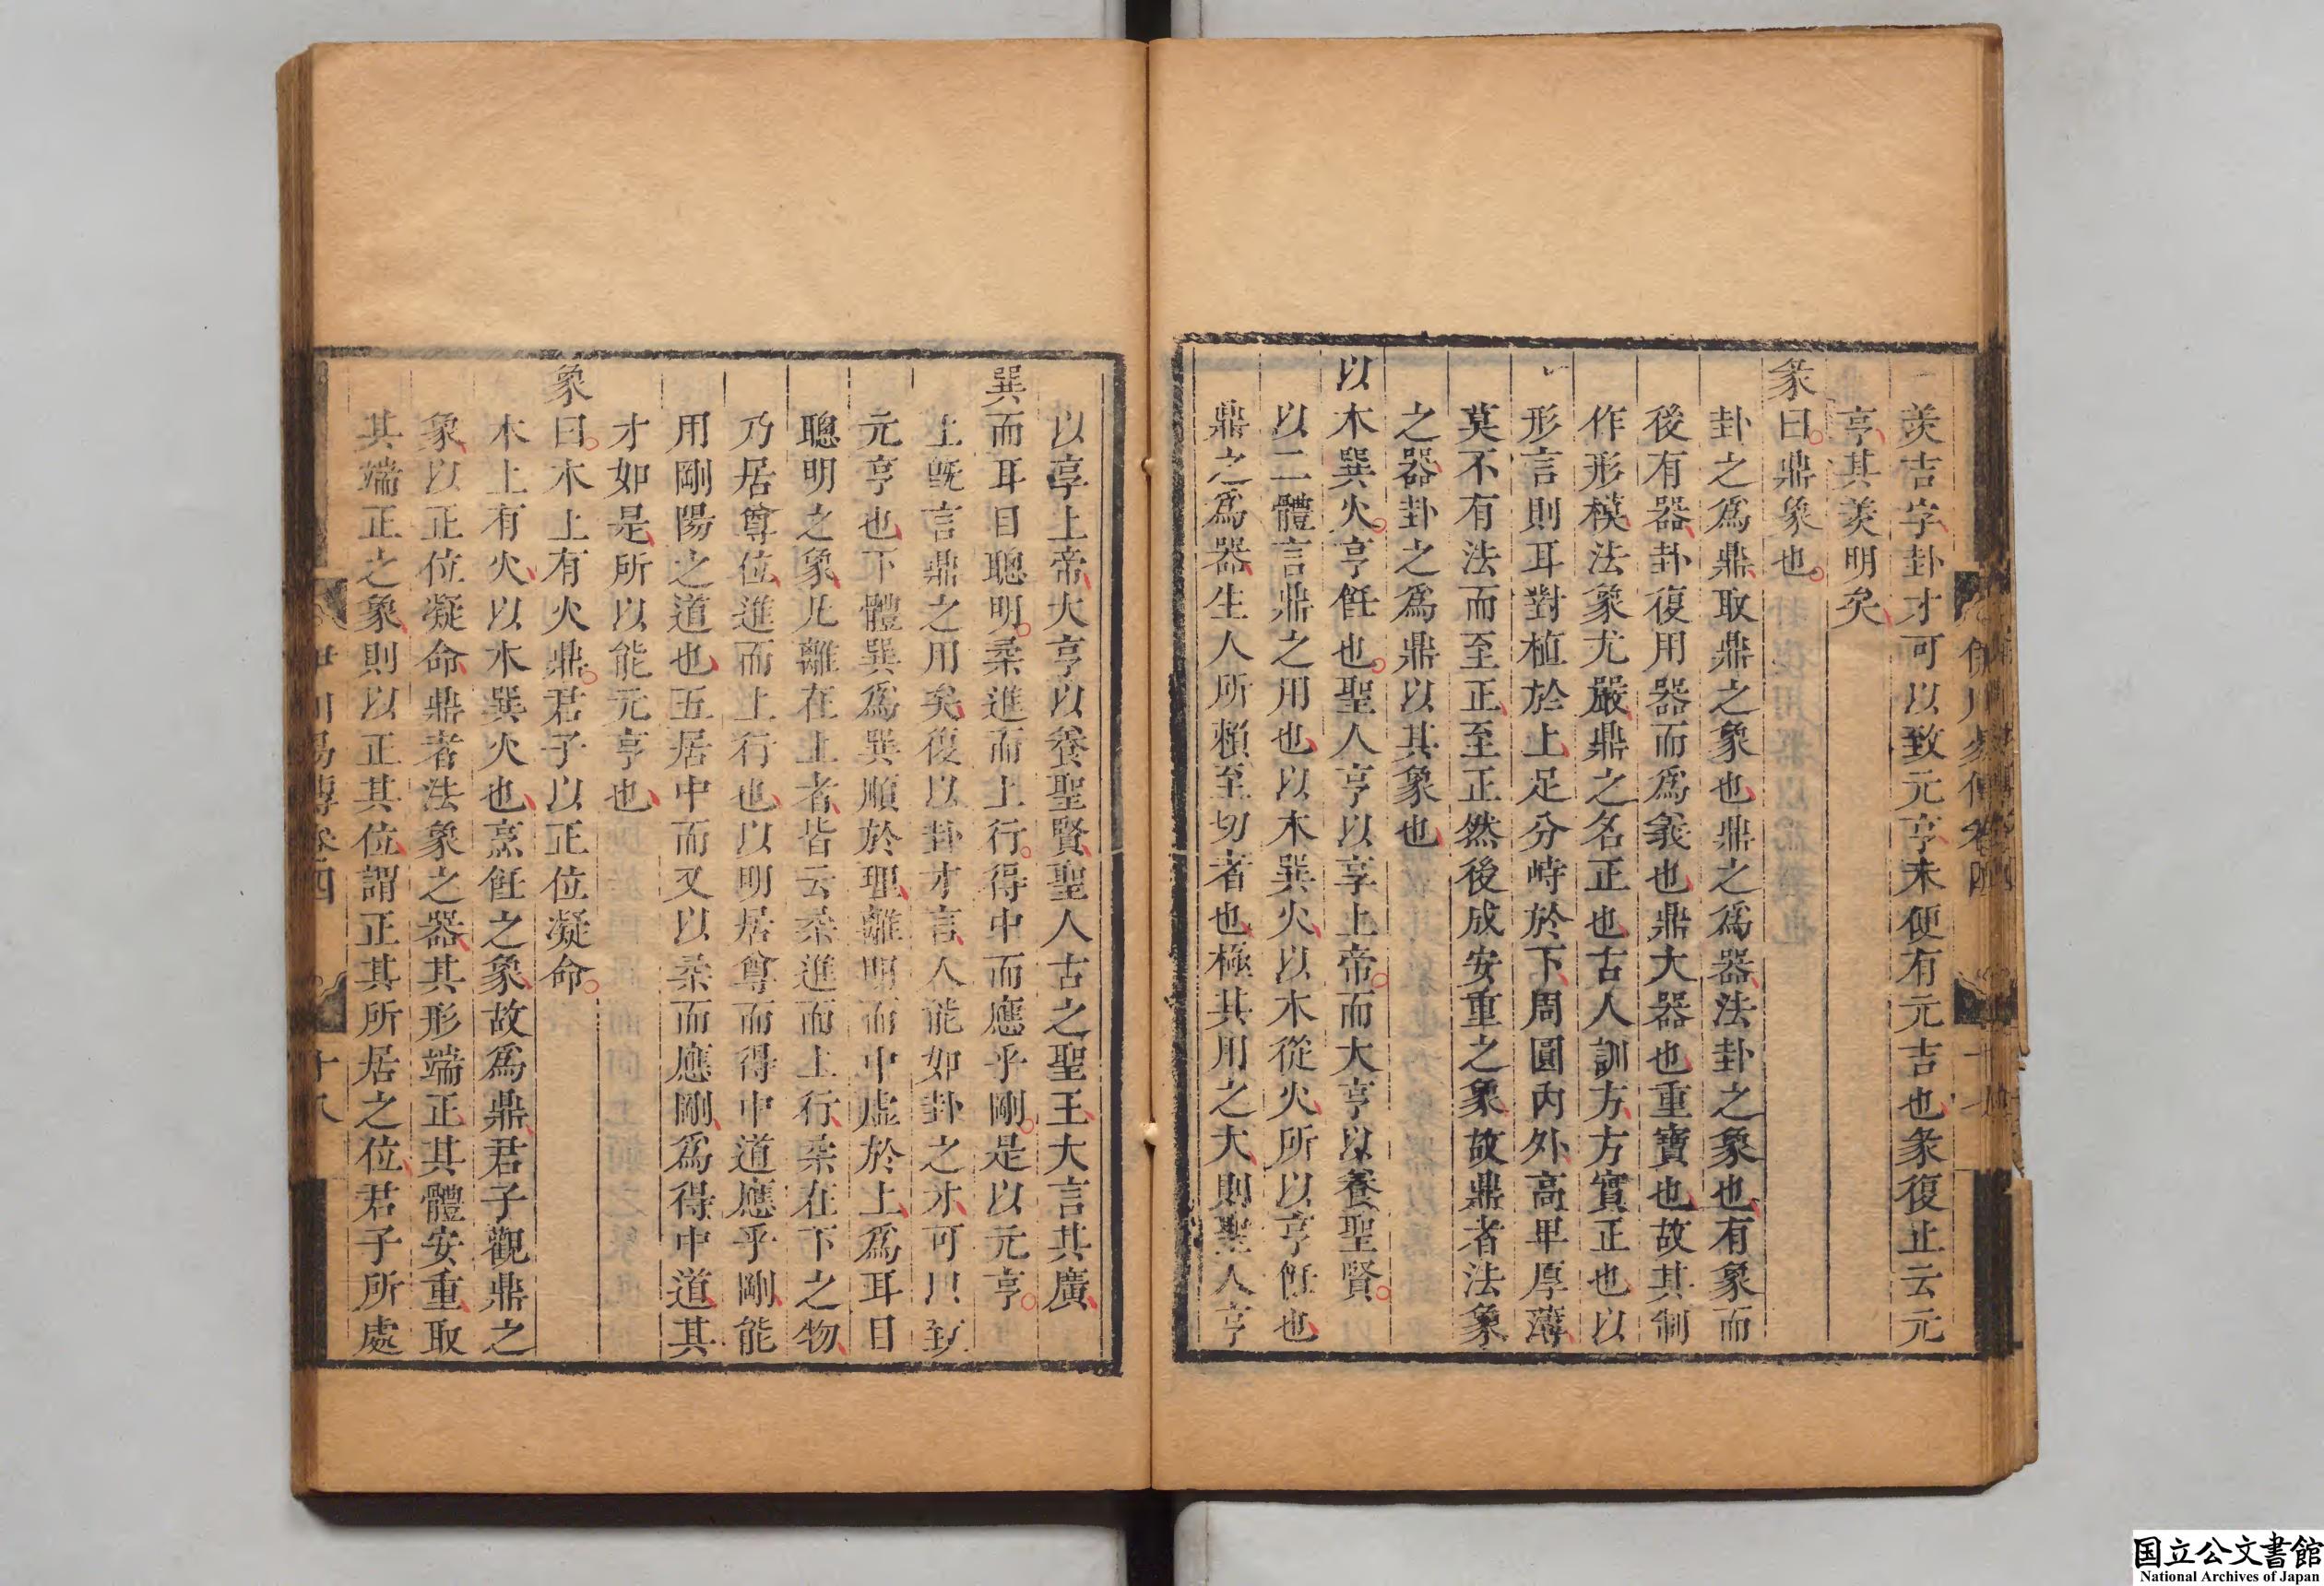 羨吉字卦才可以致元亨未便有元吉也彖復止云元
亨其羨明矣
彖曰鼎象也
卦之爲鼎取鼎之象也鼎之爲器法卦之象也有象而
後有器卦復用器而爲義也鼎大器也重寶也故其制
作形模法象尤嚴鼎之名正也古人訓方方實正也以
形言則耳對植於上足分峙於下周圓內外高卑厚薄
莫不有法而至正至正然後成安重之象故鼎者法象
之器卦之爲鼎以其象也
以木巽火亨飪也聖人亨以享上帝而大亨以養聖賢
以二體言鼎之用也以木巽火以木從火所以亨飪也
鼎之爲器生人所賴至切者也極其用之大則聖人亨
以享上帝大亨以養聖賢聖人古之聖王大言其廣
巽而耳目聰明柔進而上行得中而應乎剛是以元亨
上旣言鼎之用矣復以卦才言人能如卦之才可以致
元亨也下體巽爲巽順於理離明而中虛於上爲耳目
聰明之象凡離在上者皆云柔進而上行柔在下之物
乃居尊位進而上行也以明居尊而得中道應乎剛能
用剛陽之道也五居中而又以柔而應剛爲得中道其
才如是所以能元亨也
象曰木上有火鼎君子以正位凝命
木上有火以木巽火也烹飪之象故爲鼎君子觀鼎之
象以正位凝命鼎者法象之器其形端正其體安重取
其端正之象則以正其位謂正其所居之位君子所處
伊川易傳卷四
十八
国立公文書館
National Archives of Japan